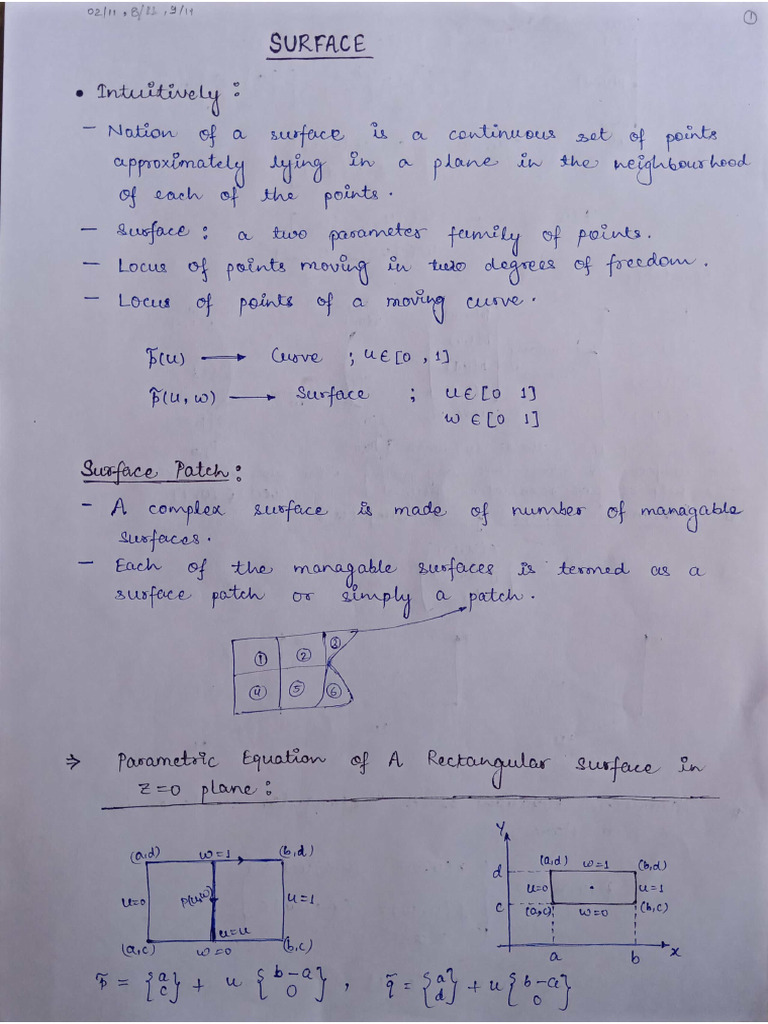 02/11, 8/11, 9/11
①
SURFACE
• Intuitively :
- Notion of a surface is a continuous set of points
approximately lying in a plane in the neighbourhood
of each of the points.
- Surface : a two parameter family of points.
- Locus of points moving in two degrees of freedom.
- Locus of points of a moving curve.
p̄(u) → Curve ; u∈[0 , 1]
p̄(u, w) → Surface ; u∈[0 1]
w∈[0 1]
Surface Patch :
- A complex surface is made of number of managable
surfaces.
- Each of the managable surfaces is termed as a
surface patch or simply a patch.
① ② ③
④ ⑤ ⑥
⇒ Parametric Equation of A Rectangular surface in
z=0 plane :
(a,d) w=1 (b,d)
u=0 p(u,w) u=1
u=u
(a,c) w=0 (b,c)
Y
d (a,d) w=1 (b,d)
u=0 u=1
c (a,c) w=0 (b,c)
a b X
p̄ = {a c} + u {b-a 0} , q̄ = {a d} + u {b-a 0}